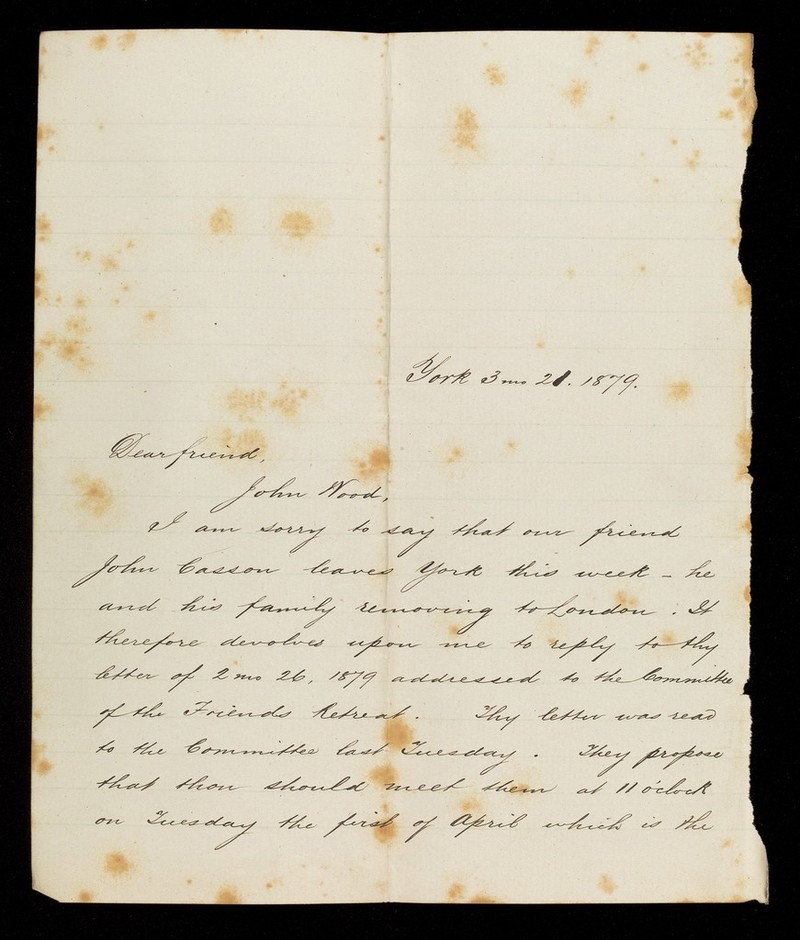 York 3 mo 21. 1879.
Dear friend,
John Wood,
I am sorry to say that our friend
John Casson leaves York this week - he
and his family removing to London. It
therefore devolves upon me to reply to thy
letter of 2 mo 26, 1879 addressed to the Committee
of the Friends Retreat. Thy letter was read
to the Committee last Tuesday. They propose
that thou should meet them at 11 o'clock
on Tuesday the first of April which is the